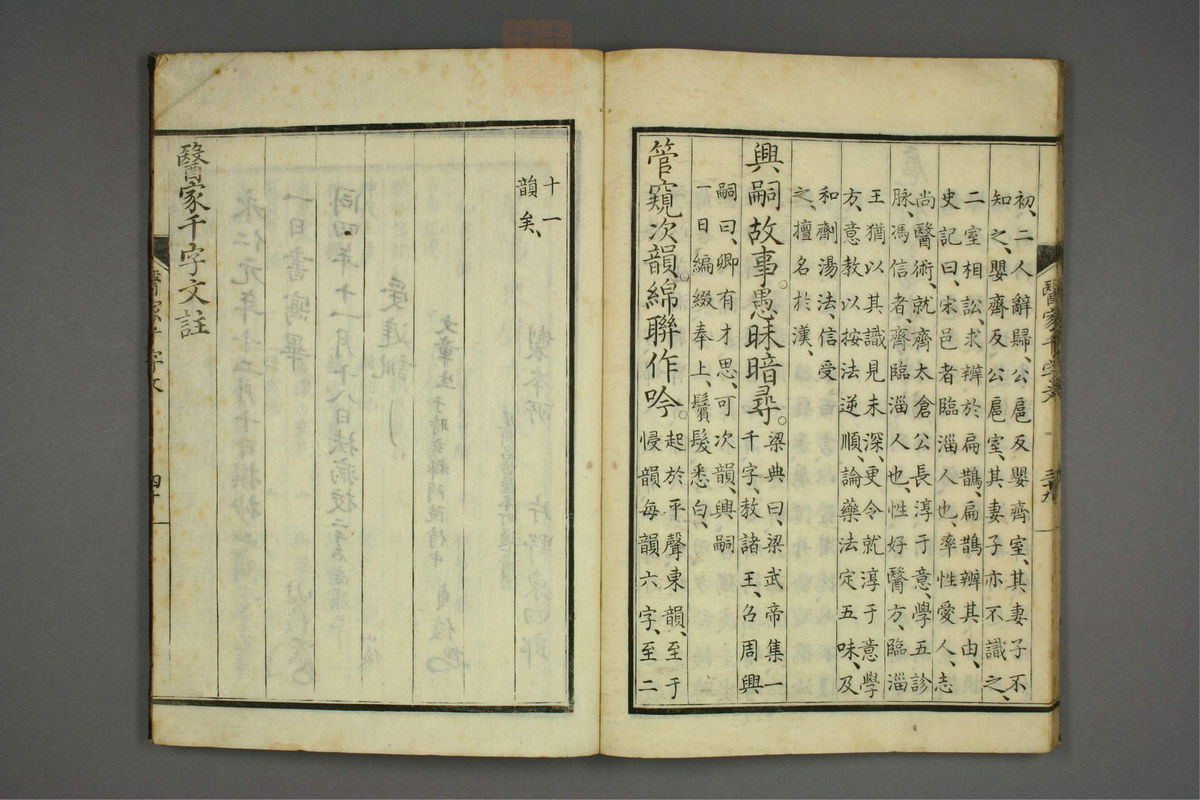 初、二人辭歸、公扈反嬰齊室、其妻子不
知之、嬰齊反公扈室、其妻子亦不識之、
二室相訟、求辨於扁鵲、扁鵲辨其由、
史記曰、宋邑者臨淄人也、率性愛人、志
尚醫術、就齊太倉公長淳于意、學五診
脉、馮信者、齊臨淄人也、性好醫方、臨淄
王猶以其識見未深、更令就淳于意學
方、意教以按法逆順、論藥法定五味、及
和劑湯法、信受
之、擅名於漢、
興嗣故事。愚昧暗尋。
梁典曰、梁武帝集一
千字、教諸王、召周興
嗣曰、卿有才思、可次韻、興嗣
一日編綴奉上、鬢髮悉白、
管窺次韻。綿聯作吟。
起於平聲東韻、至于
侵韻每韻六字、至二
十一
韻矣、
醫家千字文註
醫家千字文
三十九
醫家千字文
四十